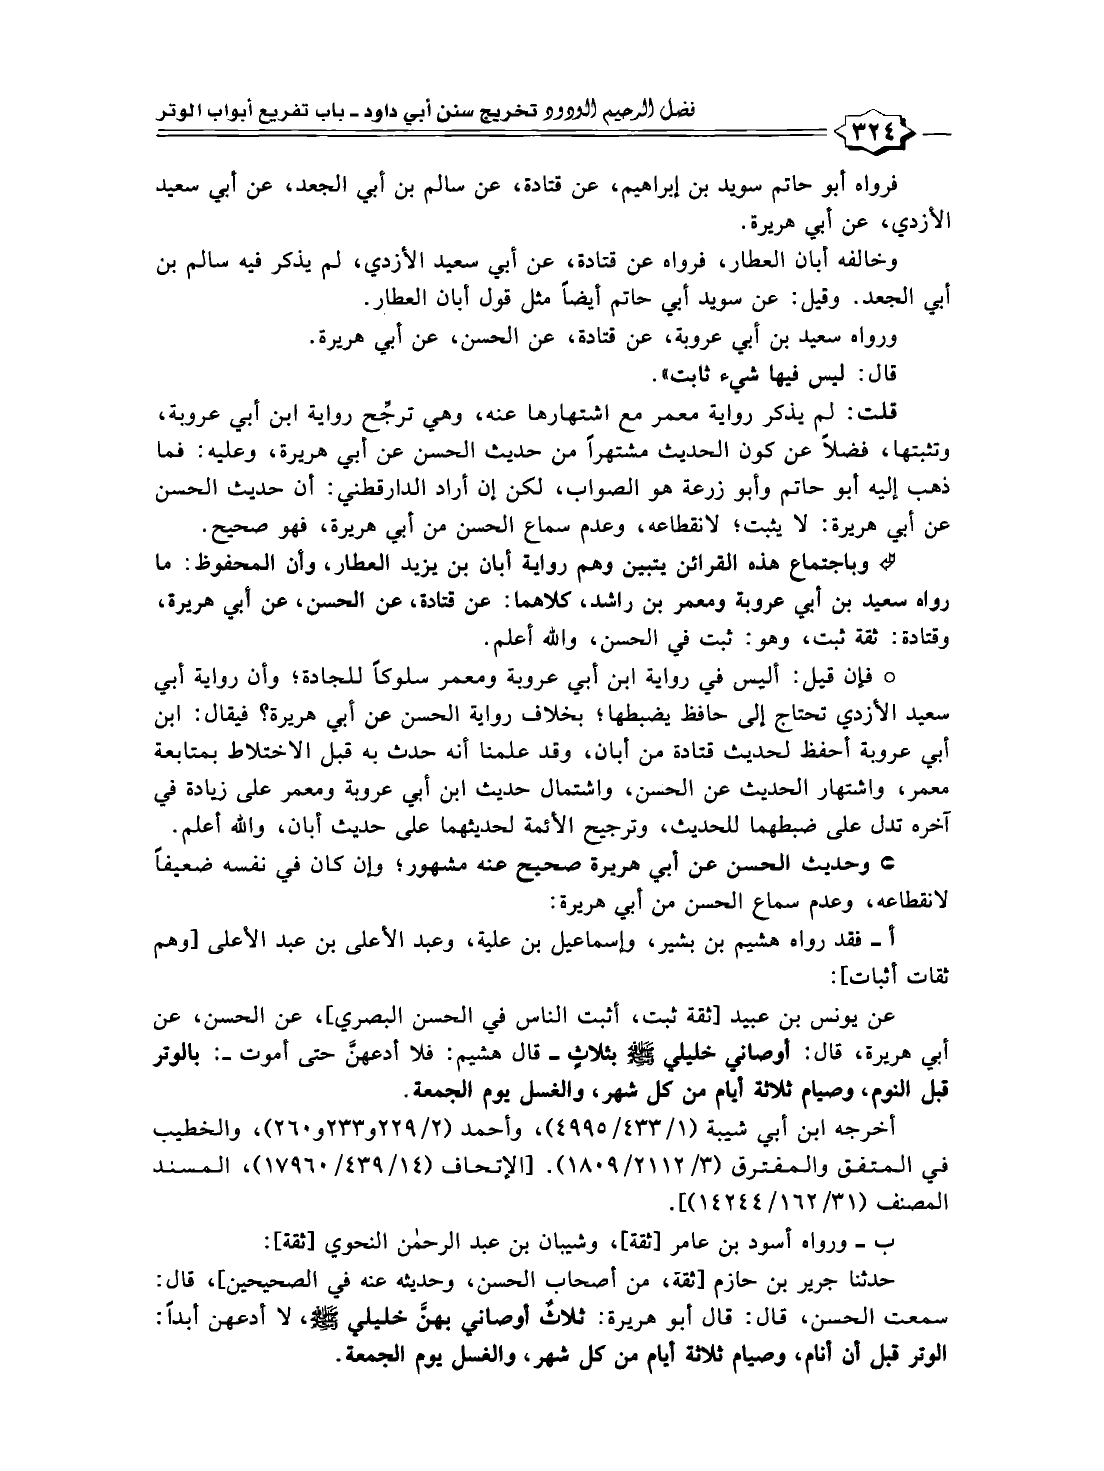 فضل الرحيم الودود تخريج سنن أبي داود ـ باب تفريع أبواب الوتر
٣٢٤
فرواه أبو حاتم سويد بن إبراهيم، عن قتادة، عن سالم بن أبي الجعد، عن أبي سعيد
الأزدي، عن أبي هريرة.
وخالفه أبان العطار، فرواه عن قتادة، عن أبي سعيد الأزدي، لم يذكر فيه سالم بن
أبي الجعد. وقيل: عن سويد أبي حاتم أيضاً مثل قول أبان العطار.
ورواه سعيد بن أبي عروبة، عن قتادة، عن الحسن، عن أبي هريرة.
قال: ليس فيها شيء ثابت».
قلت: لم يذكر رواية معمر مع اشتهارها عنه، وهي ترجِّح رواية ابن أبي عروبة،
وتثبتها، فضلاً عن كون الحديث مشتهراً من حديث الحسن عن أبي هريرة، وعليه: فما
ذهب إليه أبو حاتم وأبو زرعة هو الصواب، لكن إن أراد الدارقطني: أن حديث الحسن
عن أبي هريرة: لا يثبت؛ لانقطاعه، وعدم سماع الحسن من أبي هريرة، فهو صحيح.
وباجتماع هذه القرائن يتبين وهم رواية أبان بن يزيد العطار، وأن المحفوظ: ما
رواه سعيد بن أبي عروبة ومعمر بن راشد، كلاهما: عن قتادة، عن الحسن، عن أبي هريرة،
وقتادة: ثقة ثبت، وهو: ثبت في الحسن، والله أعلم.
○ فإن قيل: أليس في رواية ابن أبي عروبة ومعمر سلوكاً للجادة؛ وأن رواية أبي
سعيد الأزدي تحتاج إلى حافظ يضبطها؛ بخلاف رواية الحسن عن أبي هريرة؟ فيقال: ابن
أبي عروبة أحفظ لحديث قتادة من أبان، وقد علمنا أنه حدث به قبل الاختلاط بمتابعة
معمر، واشتهار الحديث عن الحسن، واشتمال حديث ابن أبي عروبة ومعمر على زيادة في
آخره تدل على ضبطهما للحديث، وترجيح الأئمة لحديثهما على حديث أبان، والله أعلم.
وحديث الحسن عن أبي هريرة صحيح عنه مشهور؛ وإن كان في نفسه ضعيفاً
لانقطاعه، وعدم سماع الحسن من أبي هريرة:
أ ـ فقد رواه هشيم بن بشير، وإسماعيل بن علية، وعبد الأعلى بن عبد الأعلى [وهم
ثقات أثبات]:
عن يونس بن عبيد [ثقة ثبت، أثبت الناس في الحسن البصري]، عن الحسن، عن
أبي هريرة، قال: أوصاني خليلي ﷺ بثلاثٍ ـ قال هشيم: فلا أدعهنَّ حتى أموت ـ: بالوتر
قبل النوم، وصيام ثلاثة أيام من كل شهر، والغسل يوم الجمعة.
أخرجه ابن أبي شيبة (١/ ٤٣٣/ ٤٩٩٥)، وأحمد (٢/ ٢٢٩و٢٣٣و٢٦٠)، والخطيب
في المتفق والمفترق (٣/ ٢١١٢/ ١٨٠٩). [الإتحاف (١٤/ ٤٣٩/ ١٧٩٦٠)، المسند
المصنف (٣١/ ١٦٢/ ١٤٢٤٤)].
ب ـ ورواه أسود بن عامر [ثقة]، وشيبان بن عبد الرحمٰن النحوي [ثقة]:
حدثنا جرير بن حازم [ثقة، من أصحاب الحسن، وحديثه عنه في الصحيحين]، قال:
سمعت الحسن، قال: قال أبو هريرة: ثلاثٌ أوصاني بهنَّ خليلي ﷺ، لا أدعهن أبداً:
الوتر قبل أن أنام، وصيام ثلاثة أيام من كل شهر، والغسل يوم الجمعة.